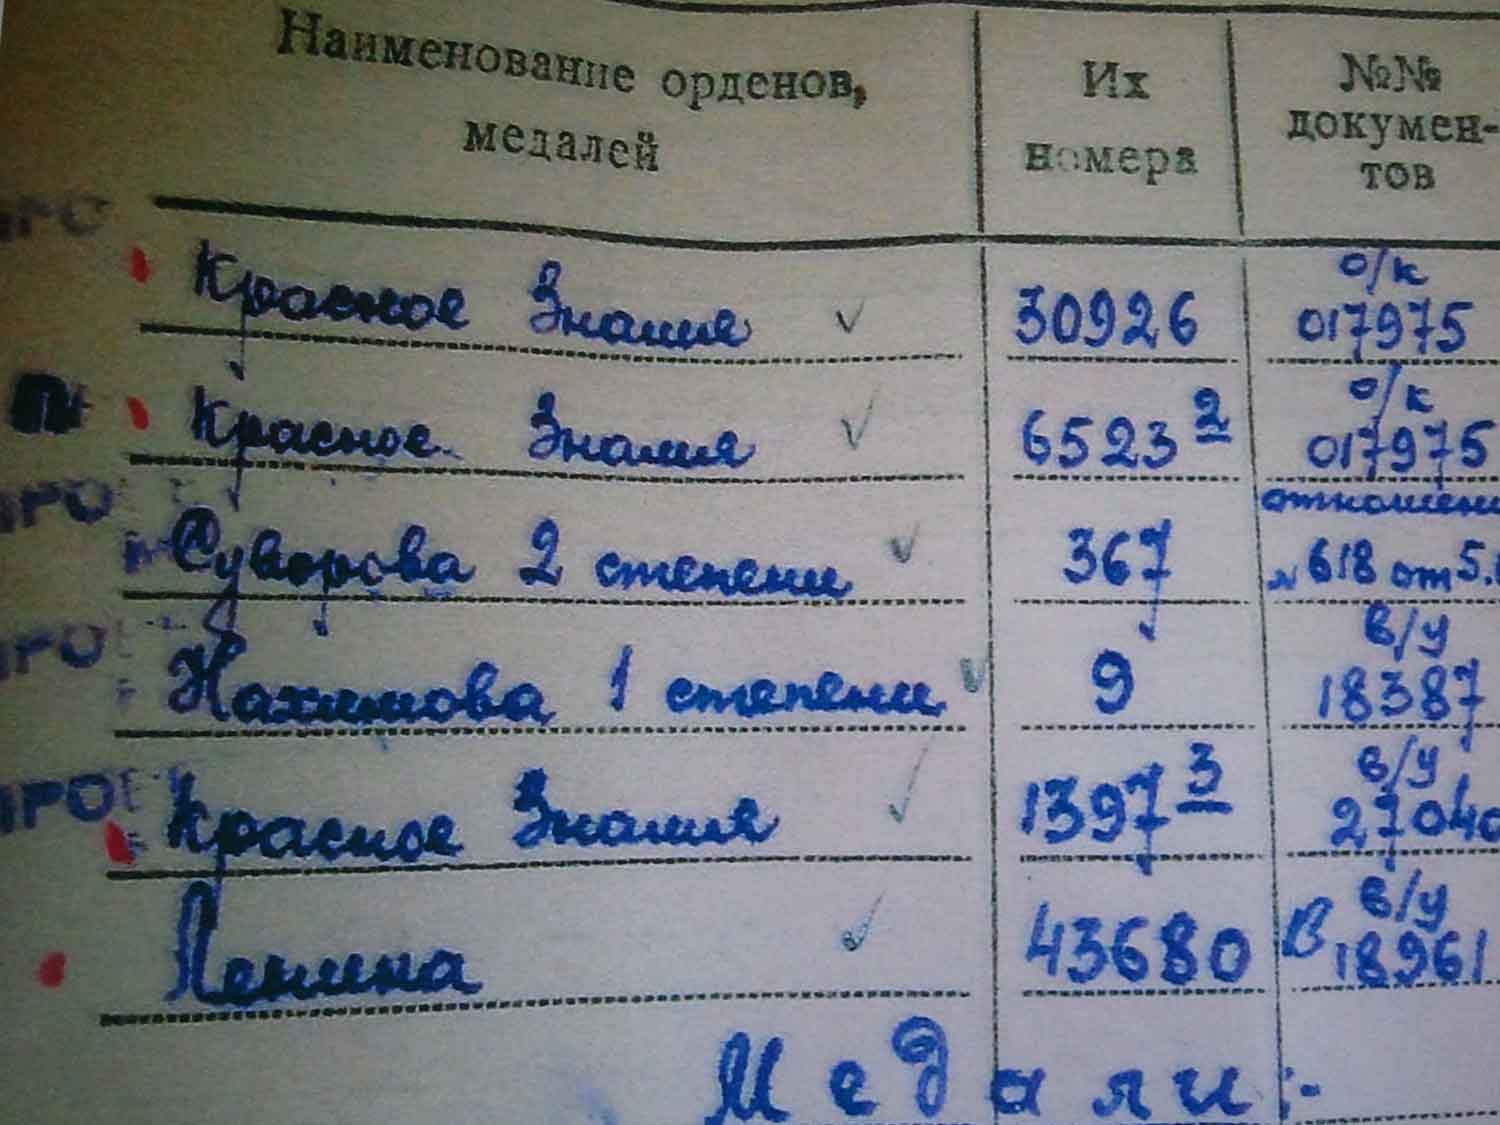 Наименование орденов, Их №№
медалей номера докумен-
тов
ПРО
о/к
Красное Знамя 30926 017975
о/к
Красное Знамя 6523 2 017975
ПРО отношени
Суворова 2 степени 367 №618 от 5.
ПРО в/у
Нахимова 1 степени 9 18387
в/у
ПРО Красное Знамя 1397 3 27040
в/у
Ленина 43680 В 18961
Медали:-